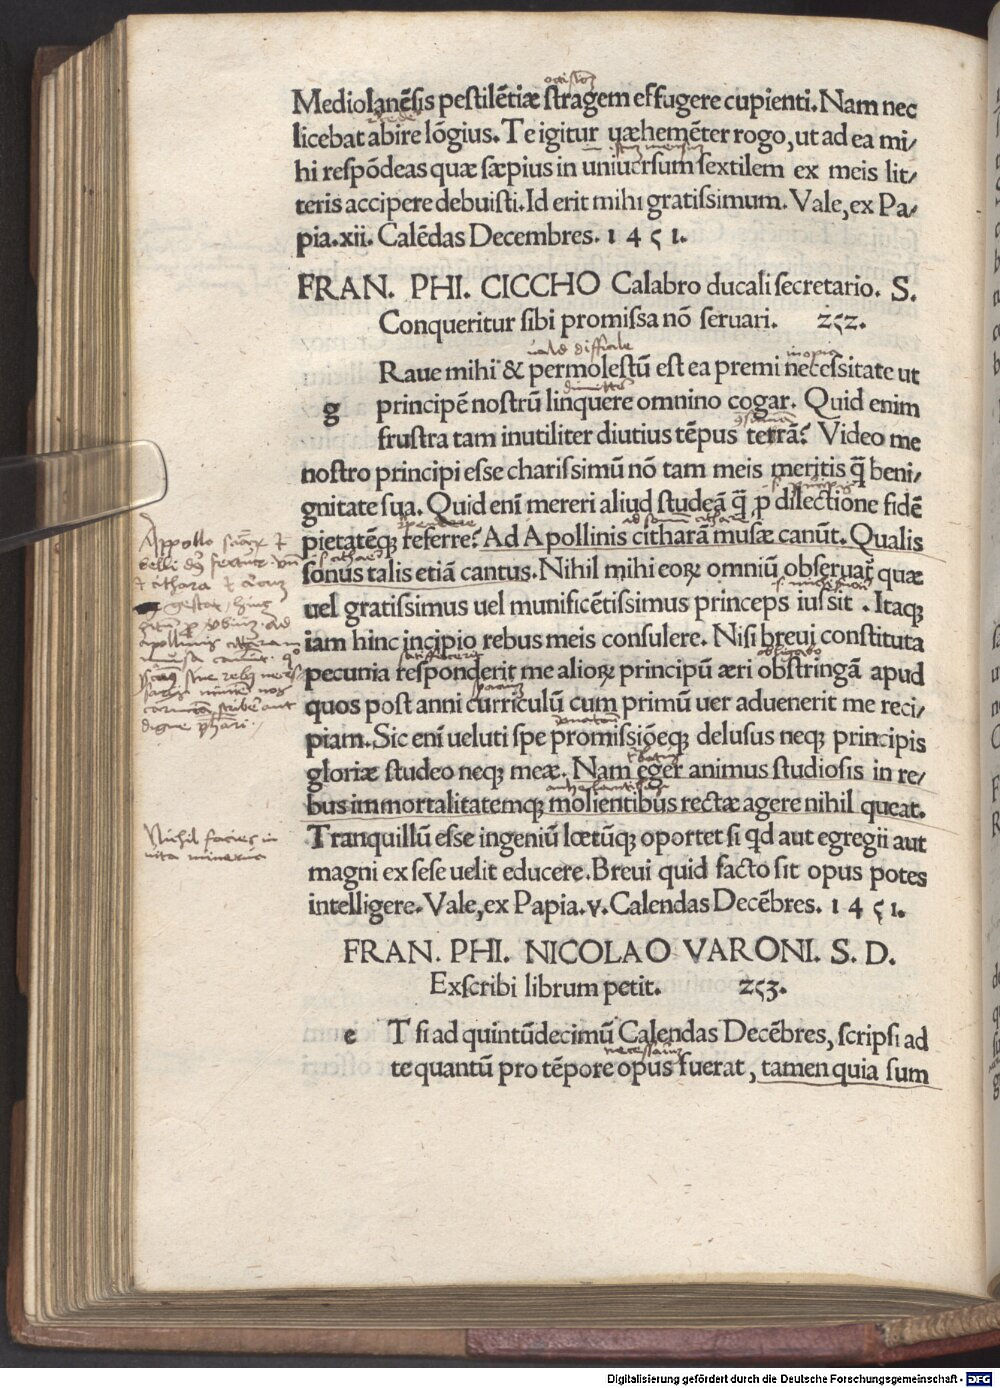 Mediolanēſis peſtilētiæ ſtragem effugere cupienti. Nam nec
licebat abire lōgius. Te igitur uæhemēter rogo, ut ad ea mi/
hi reſpōdeas quæ ſæpius in uniuerſum ſextilem ex meis lit/
teris accipere debuiſti. Id erit mihi gratiſsimum. Vale, ex Pa/
pia. xii. Calēdas Decembres. 1451.
FRAN. PHI. CICCHO Calabro ducali ſecretario. S.
Conqueritur ſibi promiſsa nō ſeruari. 252.
ualde difficile
Raue mihi & permoleſtū eſt ea premi neceſsitate ut
g principē noſtrū linquere omnino cogar. Quid enim
fruſtra tam inutiliter diutius tēpus terrā? Video me
noſtro principi eſse chariſsimū nō tam meis meritis q̄ beni/
gnitate ſua. Quid eni mereri aliud ſtudeā q̄ ꝑ dilectione fidē
pietatēqꝫ referre? Ad Apollinis citharā muſæ canūt. Qualis
ſonus talis etiā cantus. Nihil mihi eoꝝ omniū obſeruat̄ quæ
uel gratiſsimus uel munificētiſsimus princeps iuſsit. Itaqꝫ
iam hinc incipio rebus meis conſulere. Niſi breui conſtituta
pecunia reſponderit me alioꝝ principū æri obſtringā apud
quos poſt anni curriculū cum primū uer aduenerit me reci/
piam. Sic eni ueluti ſpe promiſsiōeqꝫ deluſus neqꝫ principis
gloriæ ſtudeo neqꝫ meæ. Nam eger animus ſtudioſis in re/
bus immortalitatemqꝫ molientibus rectæ agere nihil queat.
Tranquillū eſse ingeniū lœtūqꝫ oportet ſi qd aut egregii aut
magni ex ſeſe uelit educere. Breui quid facto ſit opus potes
intelligere. Vale, ex Papia. v. Calendas Decēbres. 1451.
FRAN. PHI. NICOLAO VARONI. S. D.
Exſcribi librum petit. 253.
e T ſi ad quintūdecimū Calendas Decēbres, ſcripſi ad
te quantū pro tēpore opus fuerat, tamen quia ſum
Nichil facies in
Digitalisierung gefördert durch die Deutsche Forschungsgemeinschaft - DFG